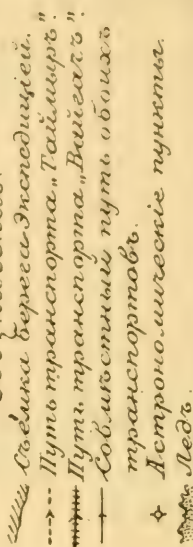 Съемка берега Экспедицiей.
Путь транспорта „Таймыръ".
Путь транспорта „Вайгачъ".
Совмѣстный путь обоихъ
транспортовъ.
Астрономическiе пункты.
Ледъ.